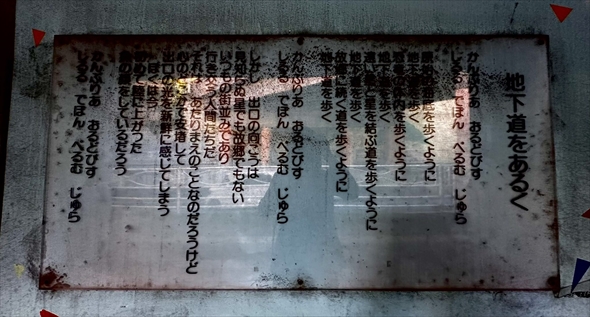 地下道をあるく
かんぶりあ おるどびす
しるる でぼん ぺるむ じゅら
海底を歩くように
地下道を歩く
体内を歩くように
地下道を歩く
遠い星と星を結ぶ道を歩くように
地下道を歩く
故郷に続く道を歩くように
地下道を歩く
かんぶりあ おるどびす
しるる でぼん ぺるむ じゅら
しかし 出口の向こうは
見知らぬ星でも故郷でもない
いつもの街並みであり
行き交う人間たちだ
それは あたりまえのことなのだろうけど
心のどこかで安堵して
出口の光を新鮮に感じてしまう
ぼくは今
初めて陸に上がった
魚の顔をしているだろう
かんぶりあ おるどびす
しるる でぼん ぺるむ じゅら